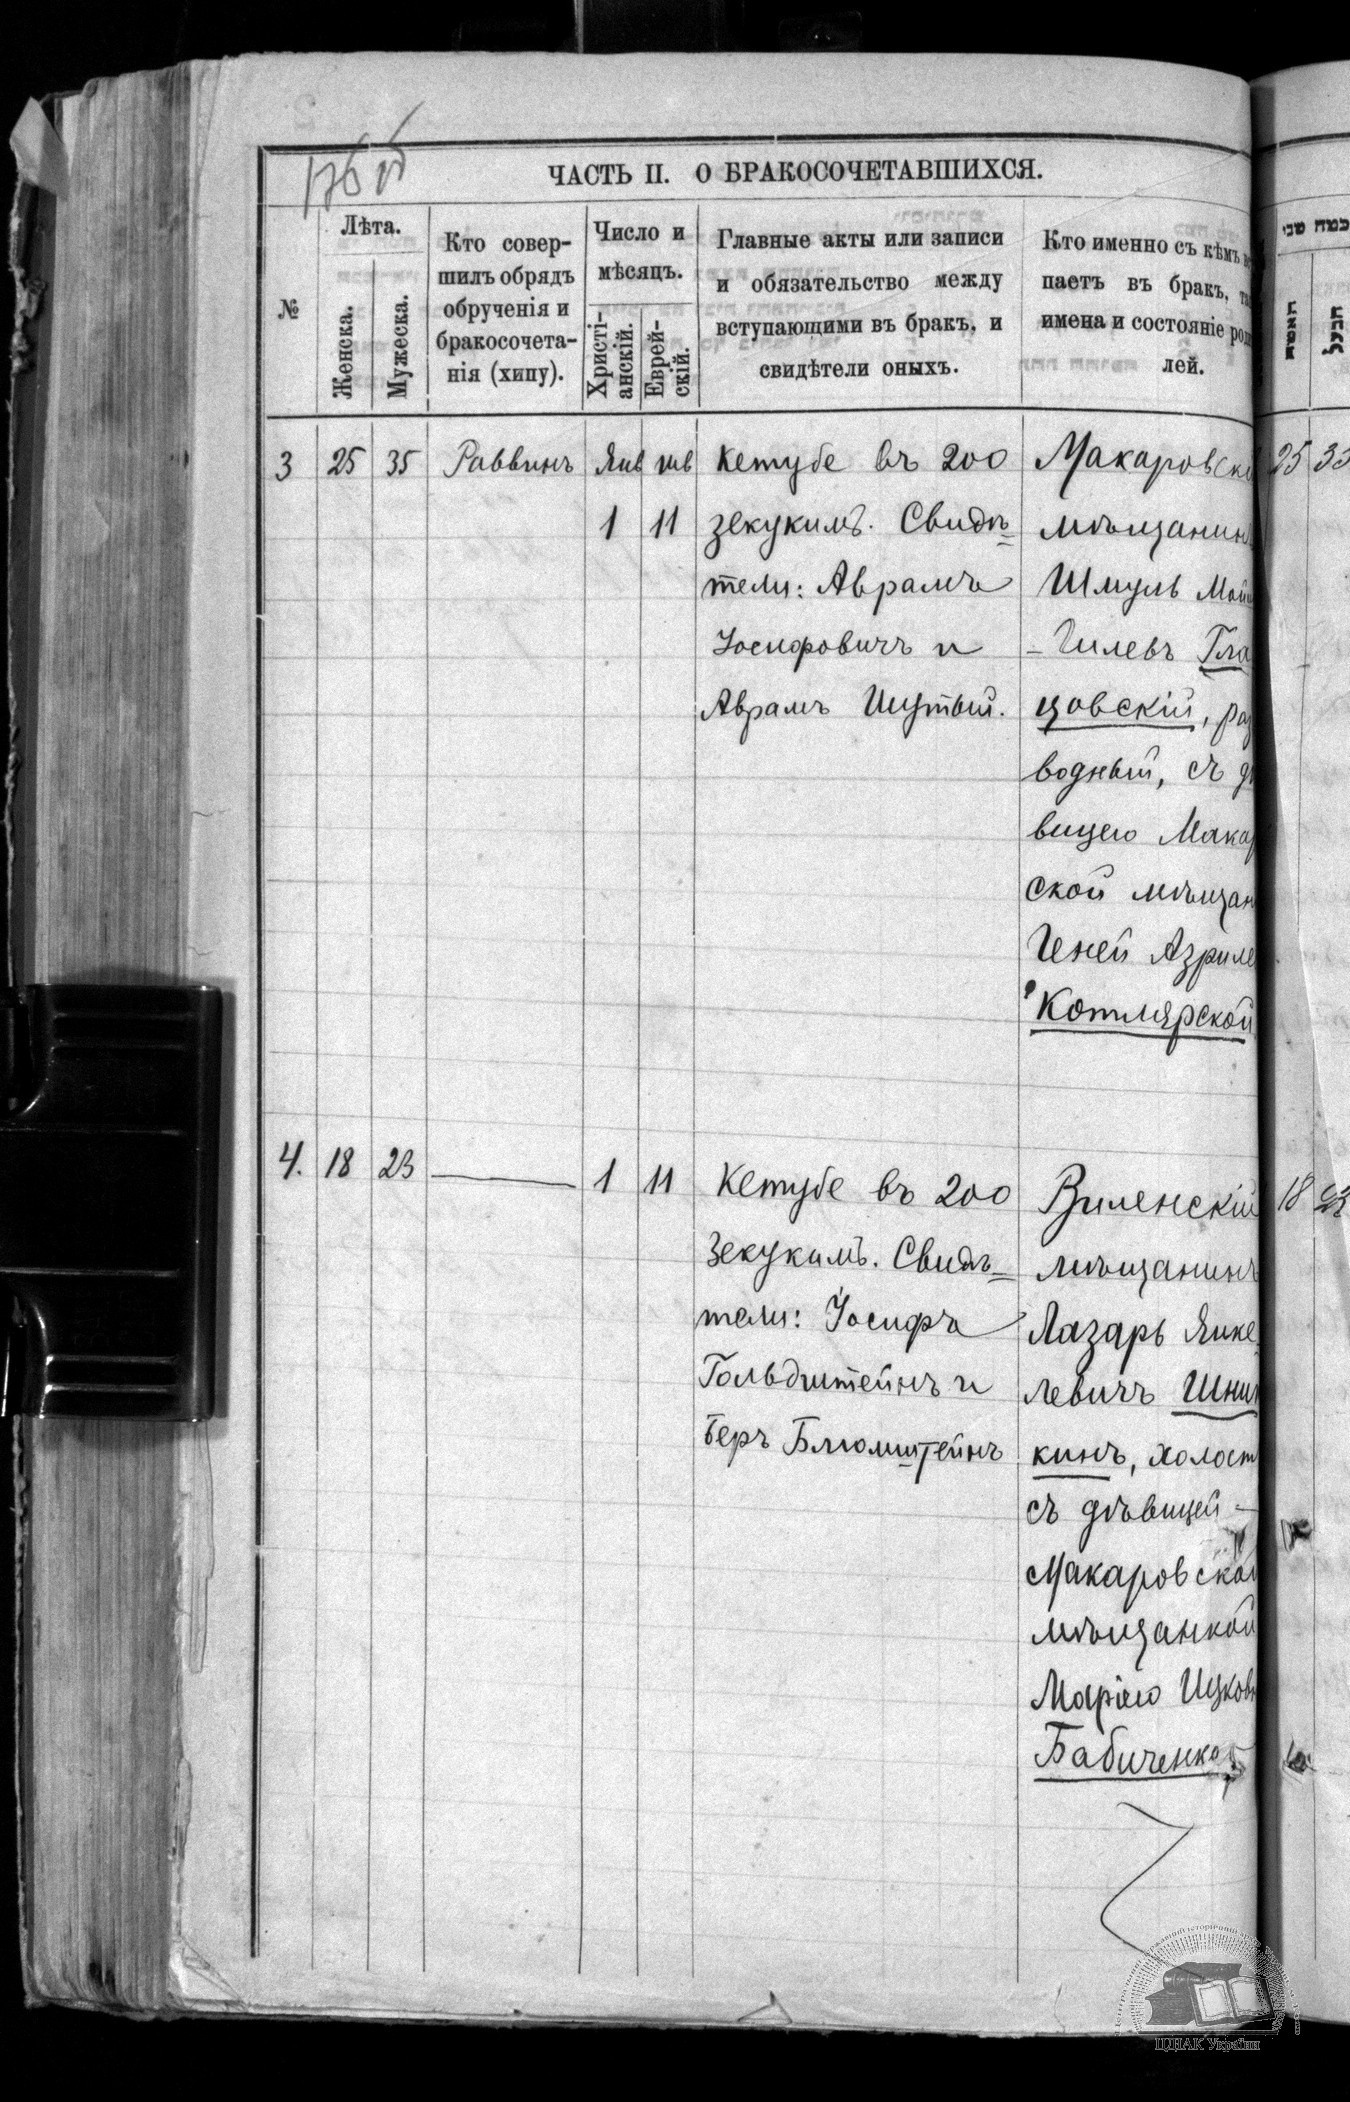 176 об
ЧАСТЬ II. О БРАКОСОЧЕТАВШИХСЯ.
№
Лѣта.
Женска.
Мужеска.
Кто совер-
шилъ обрядъ
обрученія и
бракосочета-
нія (хипу).
Число и
мѣсяцъ.
Христі-
анскій.
Еврей-
скій.
Главные акты или записи
и обязательство между
вступающими въ бракъ, и
свидѣтели оныхъ.
Кто именно съ кѣмъ
паетъ въ бракъ, та
имена и состояніе род
лей.
3 25 35 Раввинъ Янв
1 11
Кетубе въ 200
зекукимъ. Свидѣ=
тели: Аврамъ
Іосифовичъ и
Аврамъ Шутый.
Макаровск
мѣщанинъ
Шмуль Мой
-Гилевъ Гла
цовскій, раз
водный, съ дѣ
вицею Макар
ской мѣщан
Геней Азриле
Котлярской
4. 18 23 — 1 11
Кетубе въ 200
Зекукимъ. Свидѣ=
тели: Іосифъ
Гольдштейнъ и
Беръ Блюмштейнъ
Виленскій
мѣщанинъ
Лазарь Янке
левичъ Шнип
кинъ, холост
съ дѣвицей -
Макаровской
мѣщанкой
Маріею Ицков
Бабиченко
25 33
18 23
ЦДІАК України